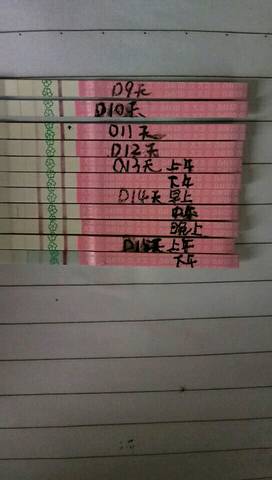 D9天
D10天
D11天
D12天
D13天 上午
下午
D14天 早上
中午
晚上
D15天 上午
下午